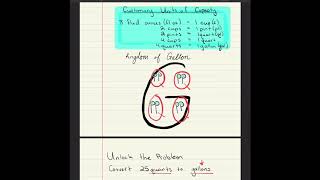 Customary Units of Capacity
8 fluid ounces (fl oz) = 1 cup (c)
2 cups = 1 pint (pt)
2 pints = 1 quart (qt)
4 cups = 1 quart
4 quarts = 1 gallon (gal)
Kingdom of Gallon
PP PP
PP PP
Unlock the Problem
Convert 25 quarts to gallons